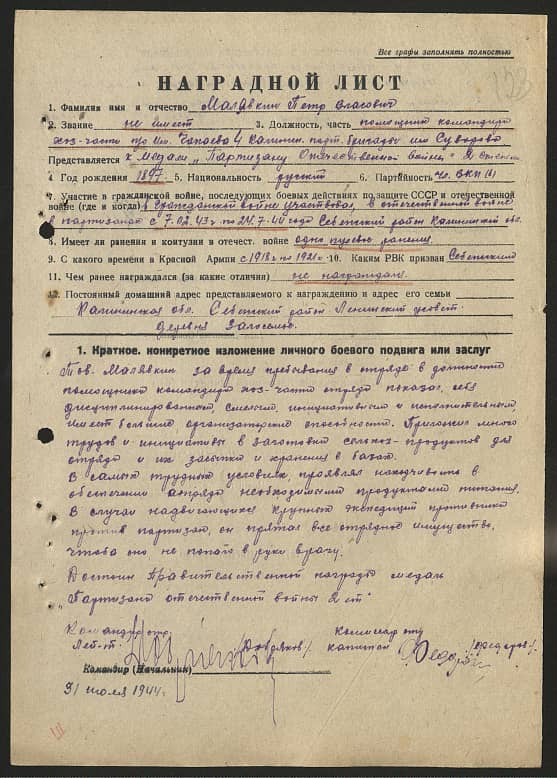 Все графы заполнять полностью
123
НАГРАДНОЙ ЛИСТ
1. Фамилия имя и отчество Малявкин Петр Власович
2. Звание не имеет 3. Должность, часть помощник командира
хоз-части п/о им. Чапаева 4 Калинин. парт. бригады им Суворова
Представляется к медали „Партизану Отечественной войны" 2 степени
4 Год рождения 1897 5. Национальность русский 6. Партийность чл. ВКП(б)
7. Участие в гражданской войне, последующих боевых действиях по защите СССР и отечественной
войне (где и когда) в гражданской войне участвовал, в отечественной войне
в партизанах с 7.02.43г по 24.7.44 года Себежский район Калининской обл.
8. Имеет ли ранения и контузии в отечест. войне одно пулевое ранения
9. С какого времени в Красной Армпи с 1918г по 1921г 10. Каким РВК призван Себежский
11. Чем ранее награждался (за какие отличия) не награждался.
12. Постоянный домашний адрес представляемого к награждению и адрес его семьи
Калининская обл. Себежский район Ленинский
деревня
1. Краткое, конкретное изложение личного боевого подвига или заслуг
Тов. Малявкин за время пребывания в отряде в должности
помощника командира хоз-части отряда показал себя
дисциплинированным, смелым, инициативным и исполнительным,
имеет большие организаторские способности. Приложил много
трудов и инициативы в заготовки сельхоз-продуктов для
отряда и их засыпки и хранения в базах.
В самых трудных условиях, проявлял находчивость в
обеспечении отряда необходимыми продуктами питания.
В случаи надвигающихся крупных экспедиций противника
против партизан, он прятал все отрядное имущество,
чтоба оно не попало в руки врагу.
Достоин Правительственной награды медаль
„Партизана отечественной войны 2 ст"
Командир отр. Комиссар отр
Лейт-т капитан /Федоров/.
Командир (Начальник)
31 июля 1944г